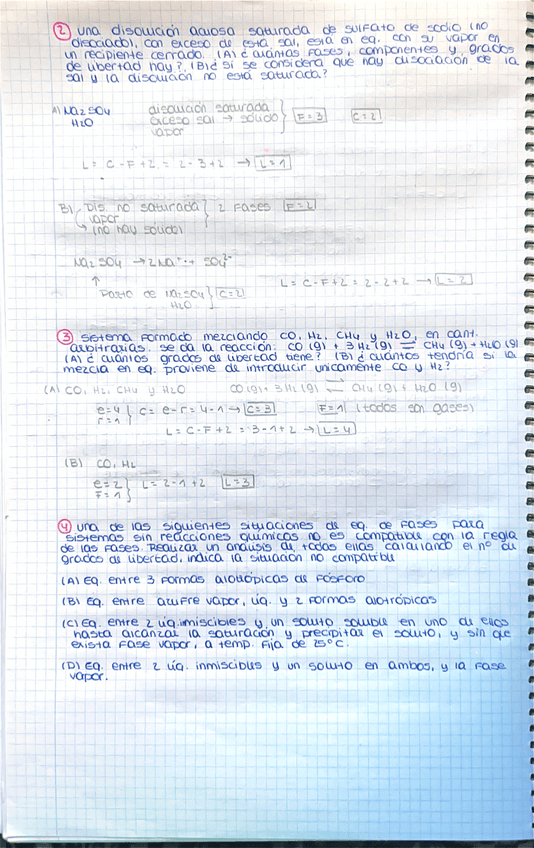 ② una disolución acuosa saturada de sulfato de sodio (no
disociado), con exceso de esta sal, está en eq. con su vapor en
un recipiente cerrado. (A) ¿cuántas fases, componentes y grados
de libertad hay? (B) ¿ si se considera que hay disociación de la
sal y la disolución no está saturada?
A) Na2SO4 disolución saturada
H2O exceso sal → sólido F=3 C=2
vapor
L= C-F+2 = 2-3+2 → L=1
B) Dis. no saturada } 2 Fases F=2
vapor
→ (no hay sólido)
Na2SO4 → 2Na+ + SO4 2-
↑
Parto de Na2SO4 } C=2 L=C-F+2 = 2-2+2 → L=2
H2O
③ Sistema formado mezclando CO, H2, CH4 y H2O, en cant.
arbitrarias. se da la reacción: CO(g) + 3H2(g) ⇌ CH4(g) + H2O(g)
(A) ¿ cuántos grados de libertad tiene? (B) ¿cuántos tendría si la
mezcla en eq. proviene de introducir unicamente CO y H2?
(A) CO, H2, CH4 y H2O CO(g) + 3H2(g) ⇌ CH4(g) + H2O(g)
e=4 } C= e-r = 4-1 → C=3 F=1 (todos son gases)
r=1
L= C-F+2 = 3-1+2 → L=4
(B) CO, H2
e=2 } L= 2-1+2 L=3
F=1
④ una de las siguientes situaciones de eq. de fases para
sistemas sin reacciones químicas no es compatible con la regla
de las fases. Realizar un análisis de todas ellas calculando el nº de
grados de libertad, indica la situación no compatible
(A) Eq. entre 3 formas alotrópicas de fósforo
(B) Eq. entre azufre vapor, líq. y 2 formas alotrópicas
(C) Eq. entre 2 líq. inmiscibles y un soluto soluble en uno de ellos
hasta alcanzar la saturación y precipitar el soluto, y sin que
exista fase vapor, a temp. fija de 25°C.
(D) Eq. entre 2 líq. inmiscibles y un soluto en ambos, y la fase
vapor.